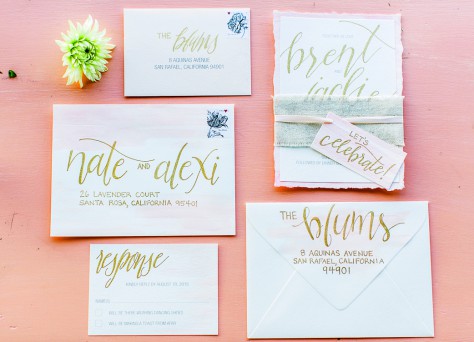 THE blums
8 AQUINAS AVENUE
SAN RAFAEL, CALIFORNIA 94901
brent
jackie
LET'S
celebrate!
nate AND alexi
26 LAVENDER COURT
SANTA ROSA, CALIFORNIA 95401
THE blums
8 AQUINAS AVENUE
SAN RAFAEL, CALIFORNIA
94901
response